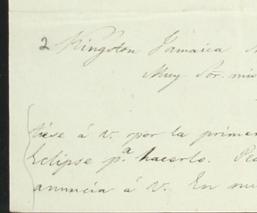 2 Kingston Jamaica
Muy Sor. mio
tése á V. por la primer
Eclipse pa. hacerlo.
anuncia á V. En mi